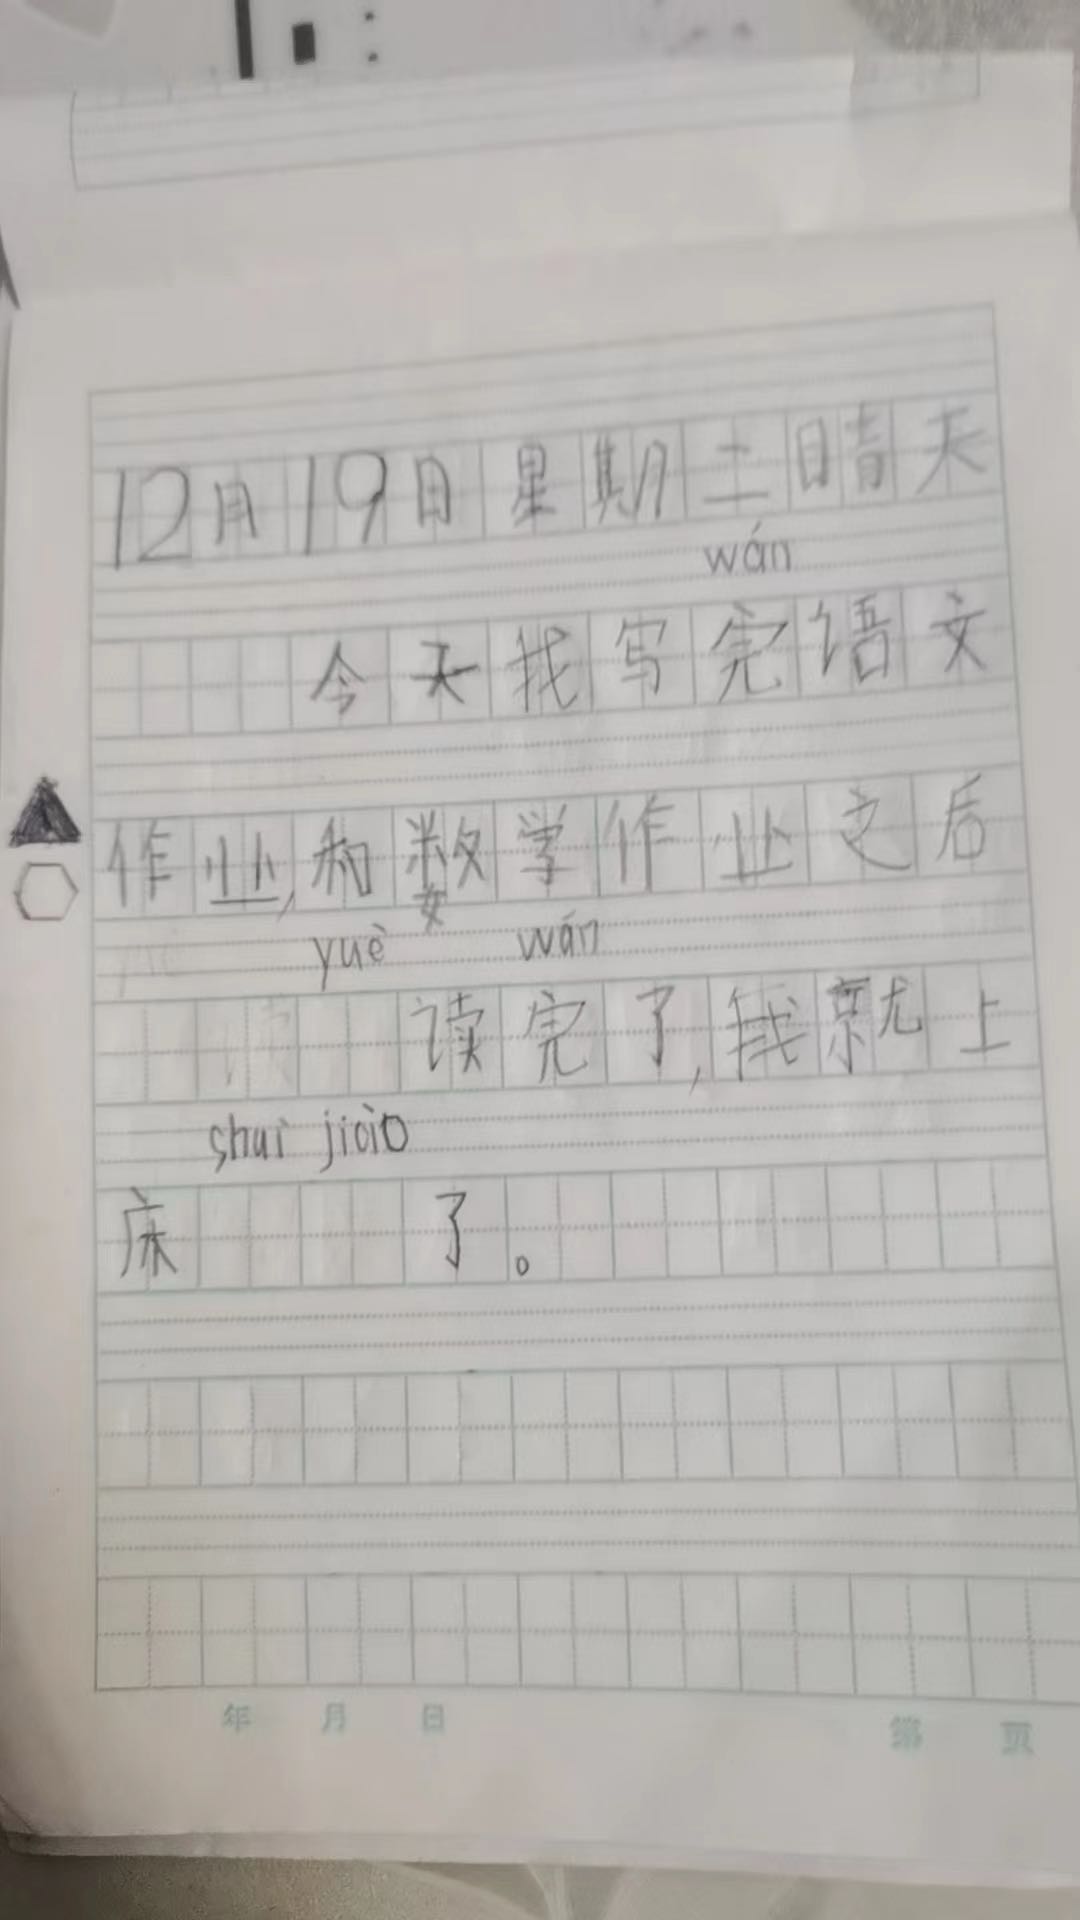 12月19日星期二晴天
wán
今天我写完语文
作业,和数学作业之后
yuè wán
读完了,我就上
shuì jiào
床 了。
年 月 日 第 页